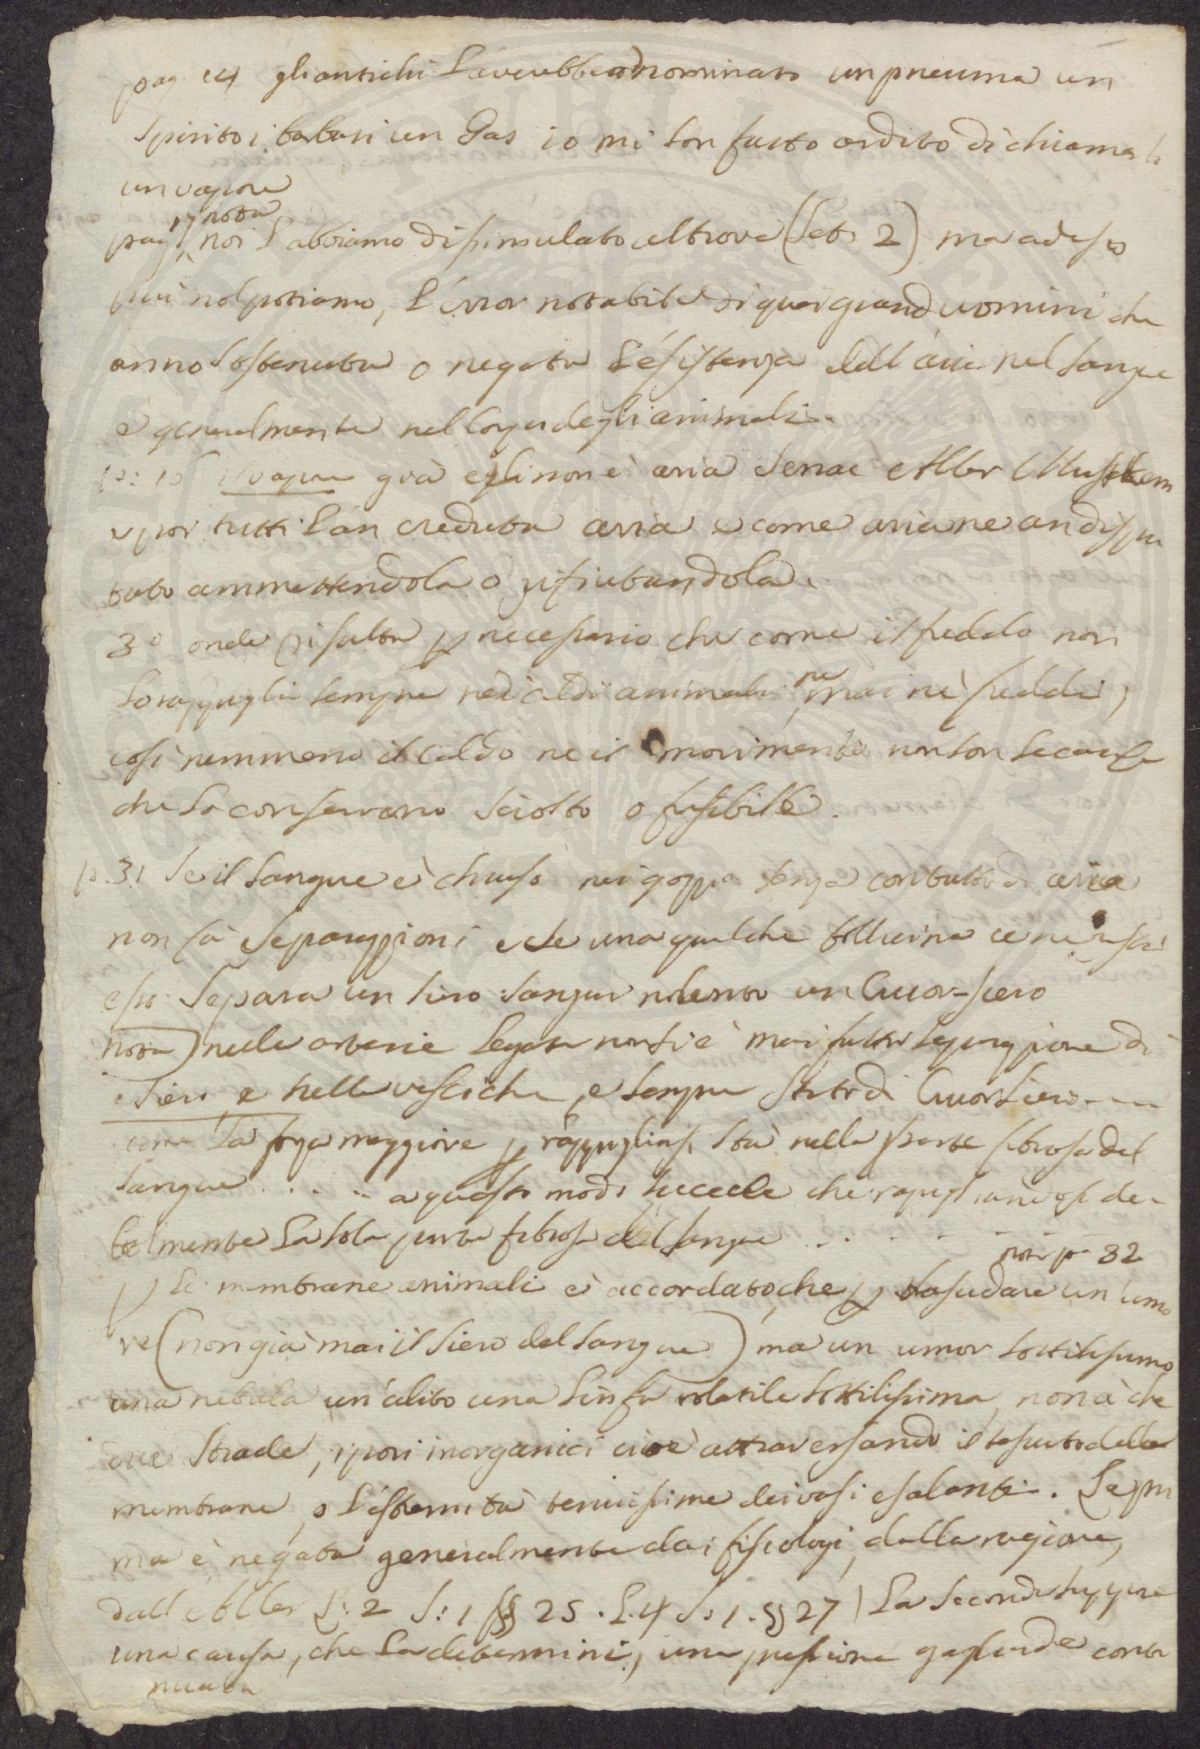 pag 14 gli antichi l'averebber denominato un pneuma un
spirito i barbari un Gas io mi son fatto ardito di chiamarlo
un vapore
pag 17 nota noi l'abbiamo dissimulato altrove (Let: 2) ma adesso
più nol potiamo, l'error notabile di quei grand uomini che
anno sostenuta o negata l'esistenza dell aria nel sangue
e generalmente nel corpo degli animali.
il vapore già egli non è aria Senac Aller
e por tutti l'an creduta aria e come aria ne an dispu
tato ammettendola o rifiutandola.
3º onde risulta p necessario che come il freddo non
lo rappiglia sempre nei caldi animali ne mai nei freddi,
così nemmeno il caldo ne il movimento non son le cause
che lo conservano sciolto o fusibile.
p. 31 Se il sangue è chiuso nei senza contatto di aria
non fa separazioni e se una qualche bollicina ce ne
esso separa un siero sanguinolento un Cuor-siero
nota) nelle arterie legate non si è mai fatta separazione di
siero e nelle vesciche, e sempre di Cuor siero ---
come la forza maggiore p rappigliarsi stà nella parte fibrosa del
sangue . . . . a questo modo succede che rapigliandosi de-
bolmente la sola parte fibrosa del sangue . . . . . .
nota p 32
p le membrane animali è accordato, che p trasudare un umo
re (non già mai il siero del sangue) ma un umor sottilissimo
una nebula un'alito una linfa volatile sottilissima, non à che
due strade, i pori inorganici cioè attraversando il tessuto delle
membrane, o l'estremità tenuissime dei vasi esalanti. La pri
ma è negata generalmente dai fisiologi, dalla ragione,
dall' Aller L: 2 S: 1 §§ 25. L. 4 S: 1. §§ 27) La seconda suppone
una causa, che la determini, una pressione gagliarda conti
nuata